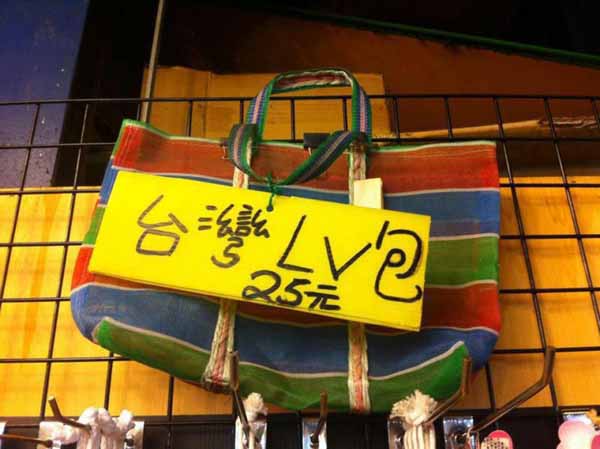 台灣LV包
25元